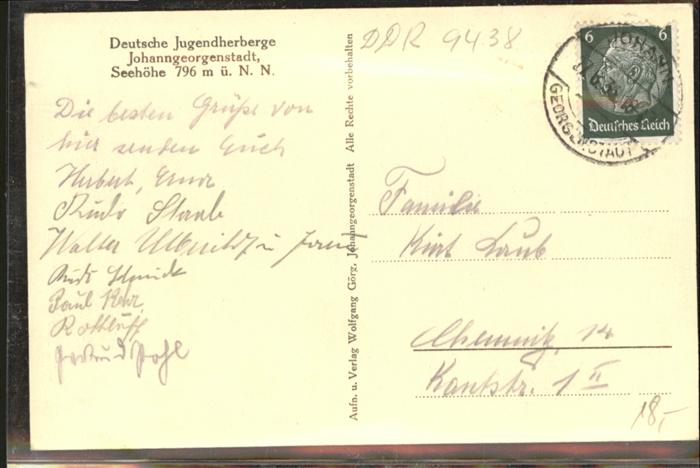 Deutsche Jugendherberge
Johanngeorgenstadt,
Seehöhe 796 m ü. N. N.
DDR 9438
6 6
Deutsches Reich
JOHANN
GEORGENSTADT
Die besten Grüße von
hier senden Euch
Herbert, Erna
Rudi Staab
Walter
Rudi Schmidt
Paul
Rottluff
Gertrud Pohl
Aufn. u. Verlag Wolfgang Görg, Johanngeorgenstadt Alle Rechte vorbehalten
Familie
Kurt Laub
Chemnitz, 14
Kantstr. 1 II
18,-